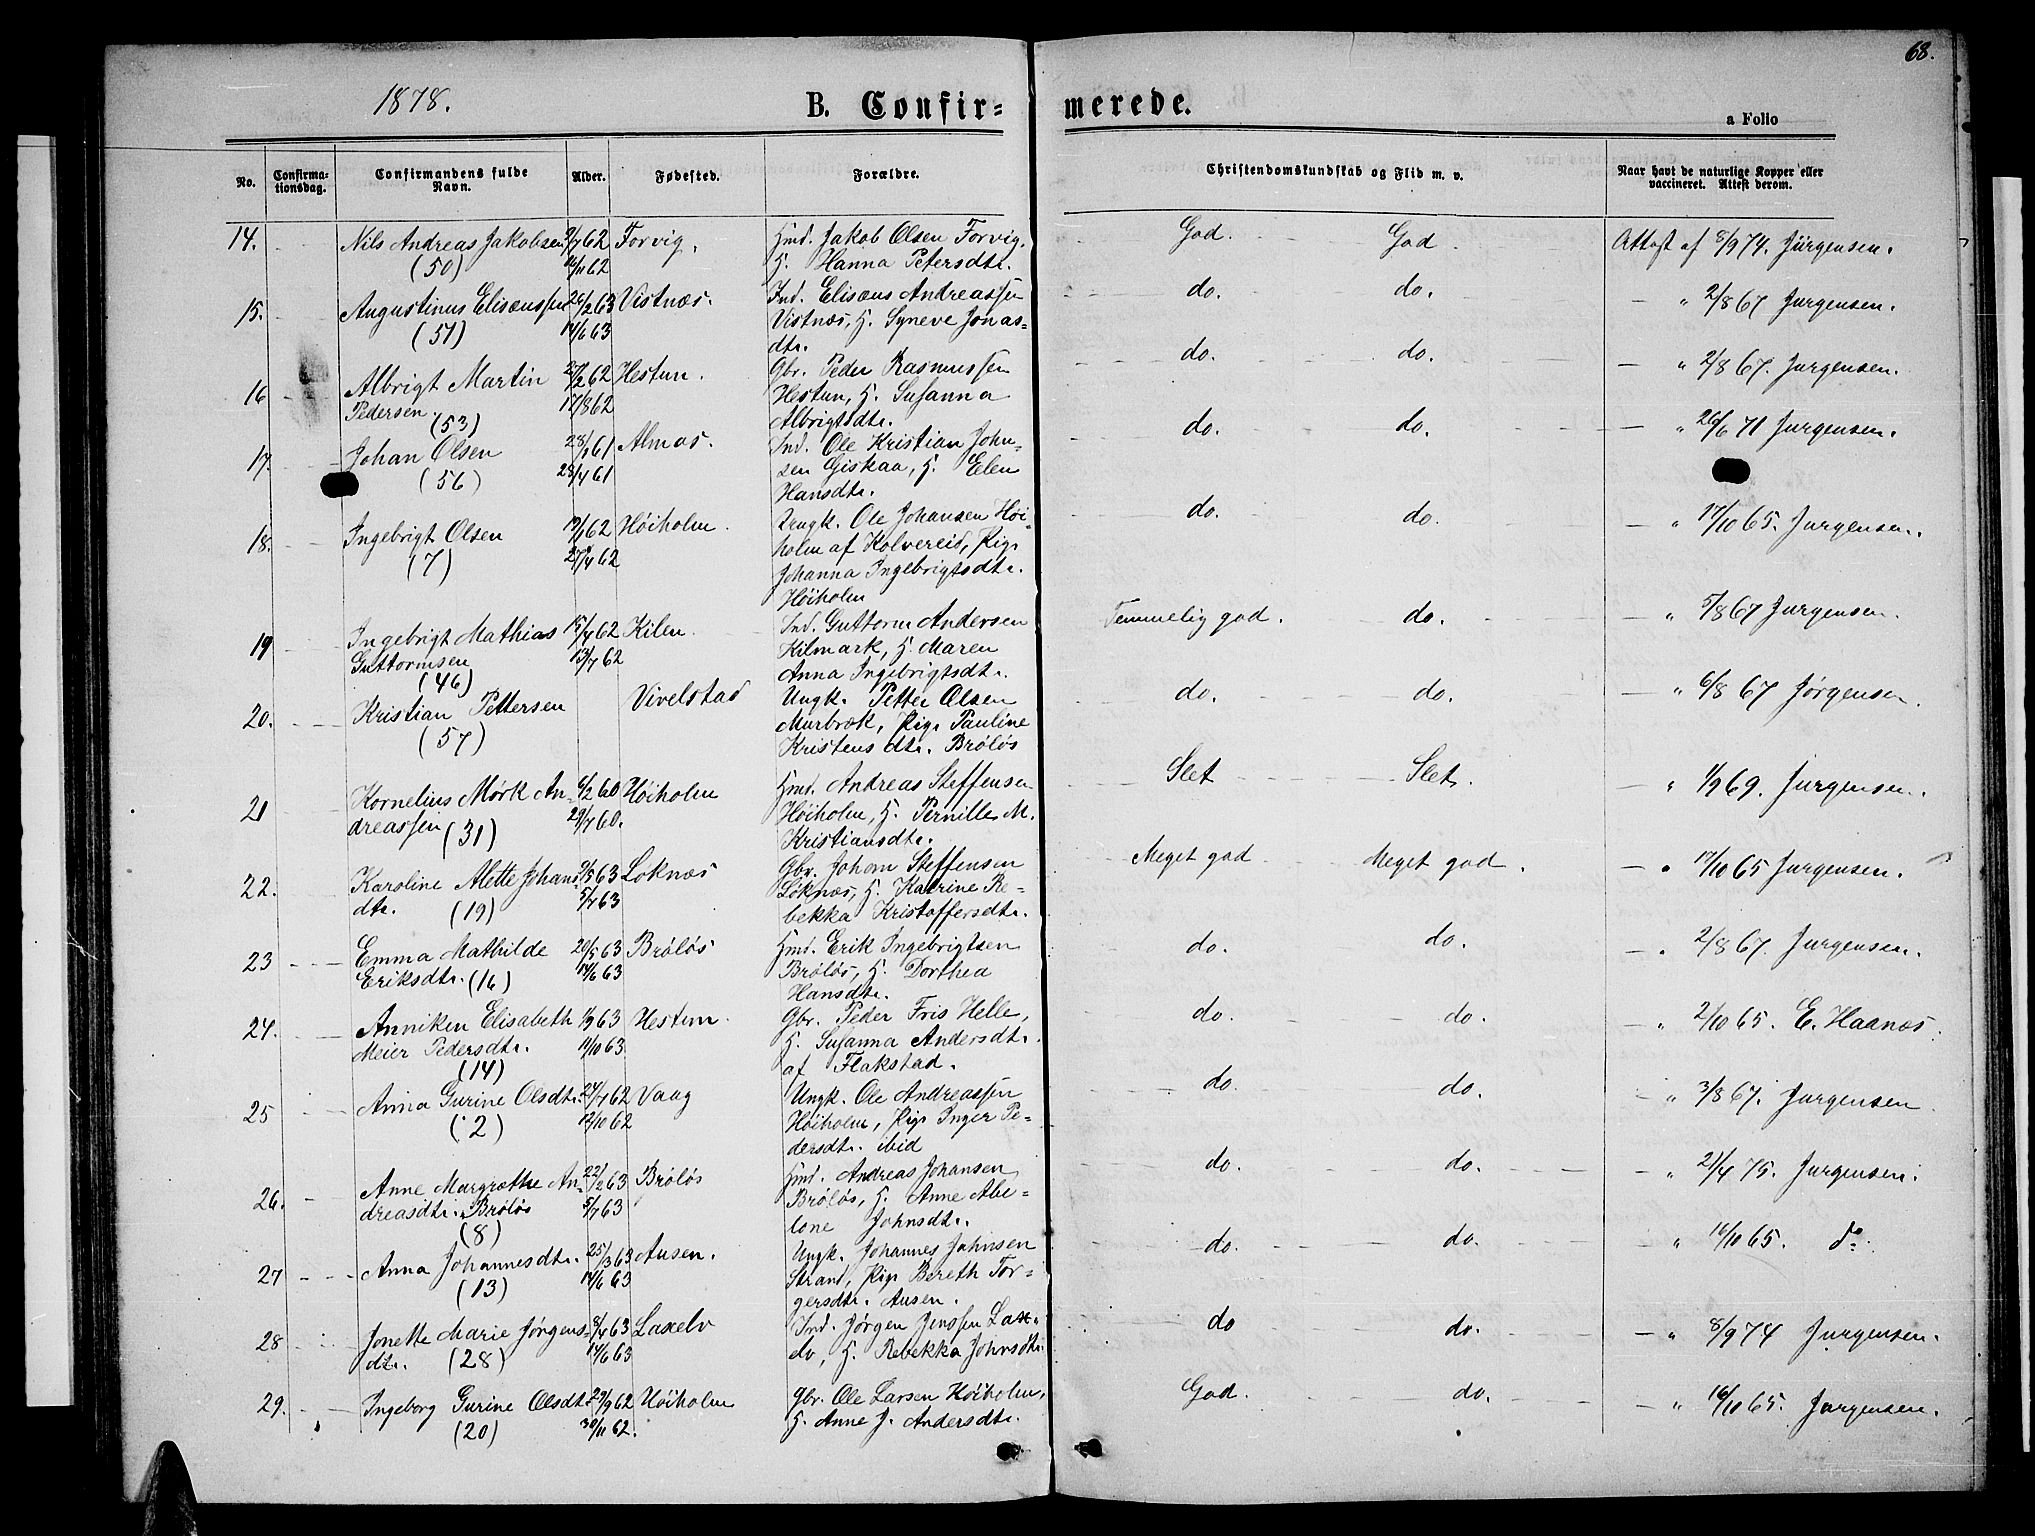 68.
1878.
B. Confir=
merede.
a Folio
No.
Confirma-
tionsdag.
Confirmandens fulde
Navn.
Alder.
Fødested.
Forældre.
Christendomskundskab og Flid m. v.
Naar havt de naturlige Kopper eller
vaccineret. Attest derom.
14. Nils Andreas Jakobsen 9/7 62 Forvig. Hmd. Jakob Olsen Forvig, God. God. Attest af 8/9 74. Jürgensen.
(50) 16/11 62 H. Hanna Petersdtr.
15. Augustinus Elisæussen 26/2 63 Vistnæs. Ind. Elisæus Andreassen do. do. " 2/8 67 Jurgensen.
(51) 14/6 63 Vistnæs, H. Syneve Jonas=
dtr.
16 Albrigt Martin 27/2 62 Hestun. Gbr. Peder Rasmussen do. do. " 2/8 67. Jurgensen.
Pedersen. (53) 17/8 62 Hestun, H. Susanna
Albrigtsdtr.
17. Johan Olsen 28/1 61 Almas. Ind. Ole Kristian John- do. do. " 26/6 71 Jurgensen.
(56) 28/4 61 sen Giskaa, H. Elen
Hansdtr.
18. Ingebrigt Olsen 13/1 62 Høiholm. Ungk. Ole Johansen Høi- do. do. " 17/10 65. Jurgensen.
(7) 27/4 62 holm af Kolvereid, Pig.
Johanna Ingebrigtsdtr.
Høiholm
19 Ingebrigt Mathias 15/4 62 Kilen. Ind. Guttorm Andersen Temmelig god. do. " 5/8 67 Jurgensen.
Guttormsen 13/7 62 Kilmark, H. Maren
(46) Anna Ingebrigtsdtr.
20. Kristian Pettersen Vivelstad Ungk. Petter Olsen do. do. " 6/8 67 Jørgensen.
(57) Murbræk, Pig. Pauline
Kristensdtr. Brøløs
21 Kornelius Mørk An- 6/2 60 Høiholm Hmd. Andreas Steffensen Slet Slet. " 1/9 69. Jurgensen.
dreassen (31) 29/7 60. Høiholm, H. Pernille M.
Kristiansdtr.
22. Karoline Alette Johans- 9/5 63 Løknæs Gbr. Johan Steffensen Meget god Meget god. " 17/10 65 Jurgensen.
dtr. (19) 5/7 63 Løknæs, H. Katrine Re-
bekka Kristoffersdtr.
23 Emma Mathilde 20/5 63 Brøløs Hmd. Erik Ingebrigtsen do. do. " 2/8 67. Jurgensen.
Eriksdtr. (16) 14/6 63 Brøløs, H. Dorthea
Hansdtr.
24. Anniken Elisabeth 1/9 63 Hestun. Gbr. Peder Fris Helle, do. do. " 2/10 65. E. Haanæs.
Meier Pedersdtr. 11/10 63 H. Susanna Andersdtr.
(14) af Flakstad.
25 Anna Gurine Olsdtr. 24/7 62 Vaag Ungk. Ole Andreassen do. do. " 3/8 67. Jurgensen
(2) 12/10 62 Høiholm, Pig. Inger Pe-
dersdtr. ibid
26. Anne Margrethe An- 22/2 63 Brøløs Hmd. Andreas Johansen do. do. " 21/4 75. Jurgensen.
dreasdtr. Brøløs 5/7 63 Brøløs, H. Anne Abe-
(8) lone Johnsdtr.
27 Anna Johannesdtr. 25/3 63 Ausen. Ungk. Johannes Johnsen do. do. " 16/10 65. do.
(13) 14/6 63 Strand, Pig. Bereth Tor-
gersdtr. Ausen.
28 Jonette Marie Jørgens- 8/4 63 Laxelv Ind. Jørgen Jenssen Lax- do do. " 8/9 74 Jurgensen.
dtr. (28) 14/6 63 elv, H. Rebekka Johnsdtr.
29. Ingeborg Gurine Olsdtr. 29/9 62 Høiholm Gbr. Ole Larsen Høiholm, God. do. " 16/10 65. Jurgensen.
(20) 30/11 62. H. Anne J. Andersdtr.